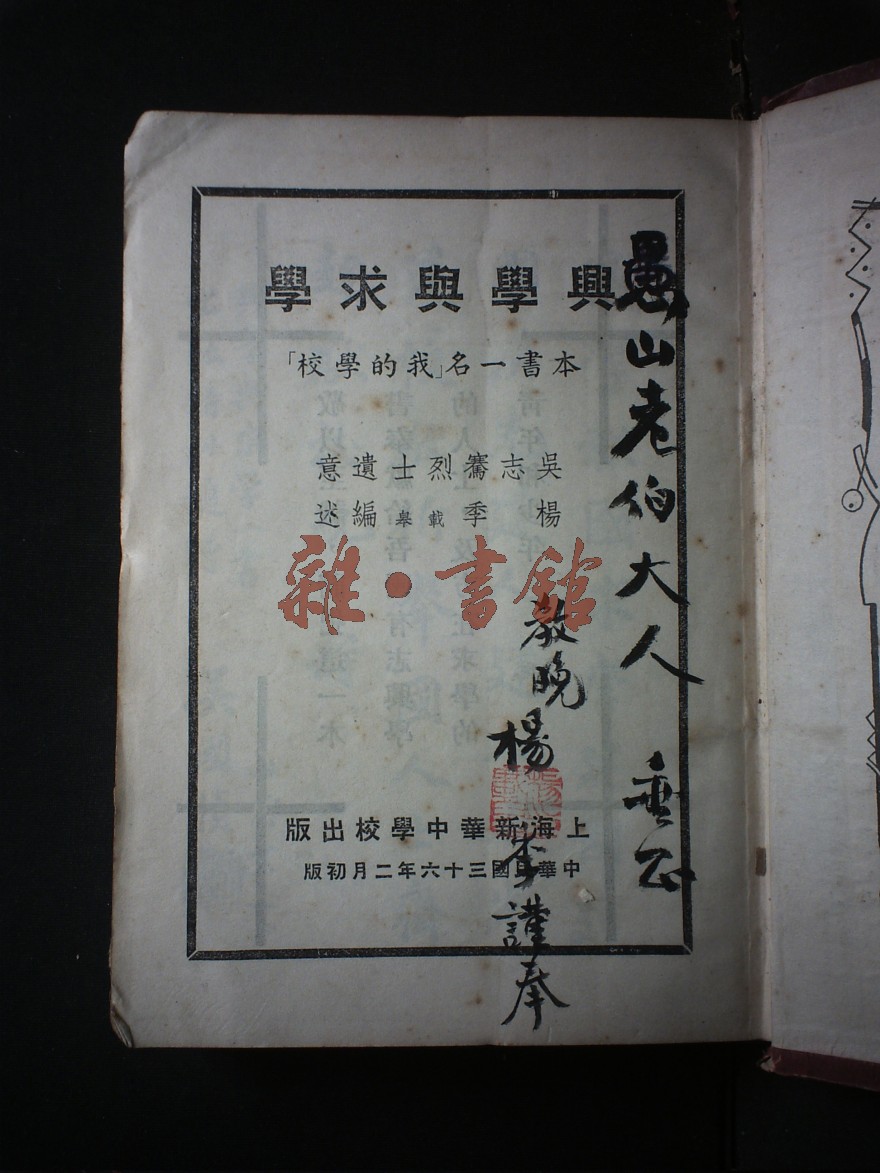 興學與求學
本書一名「我的學校」
吳志騫烈士遺意
楊季載皋編述
上海新華中學校出版
中華民國三十六年二月初版
愚山老伯大人 垂正
教晚楊季謹奉
雜·書館